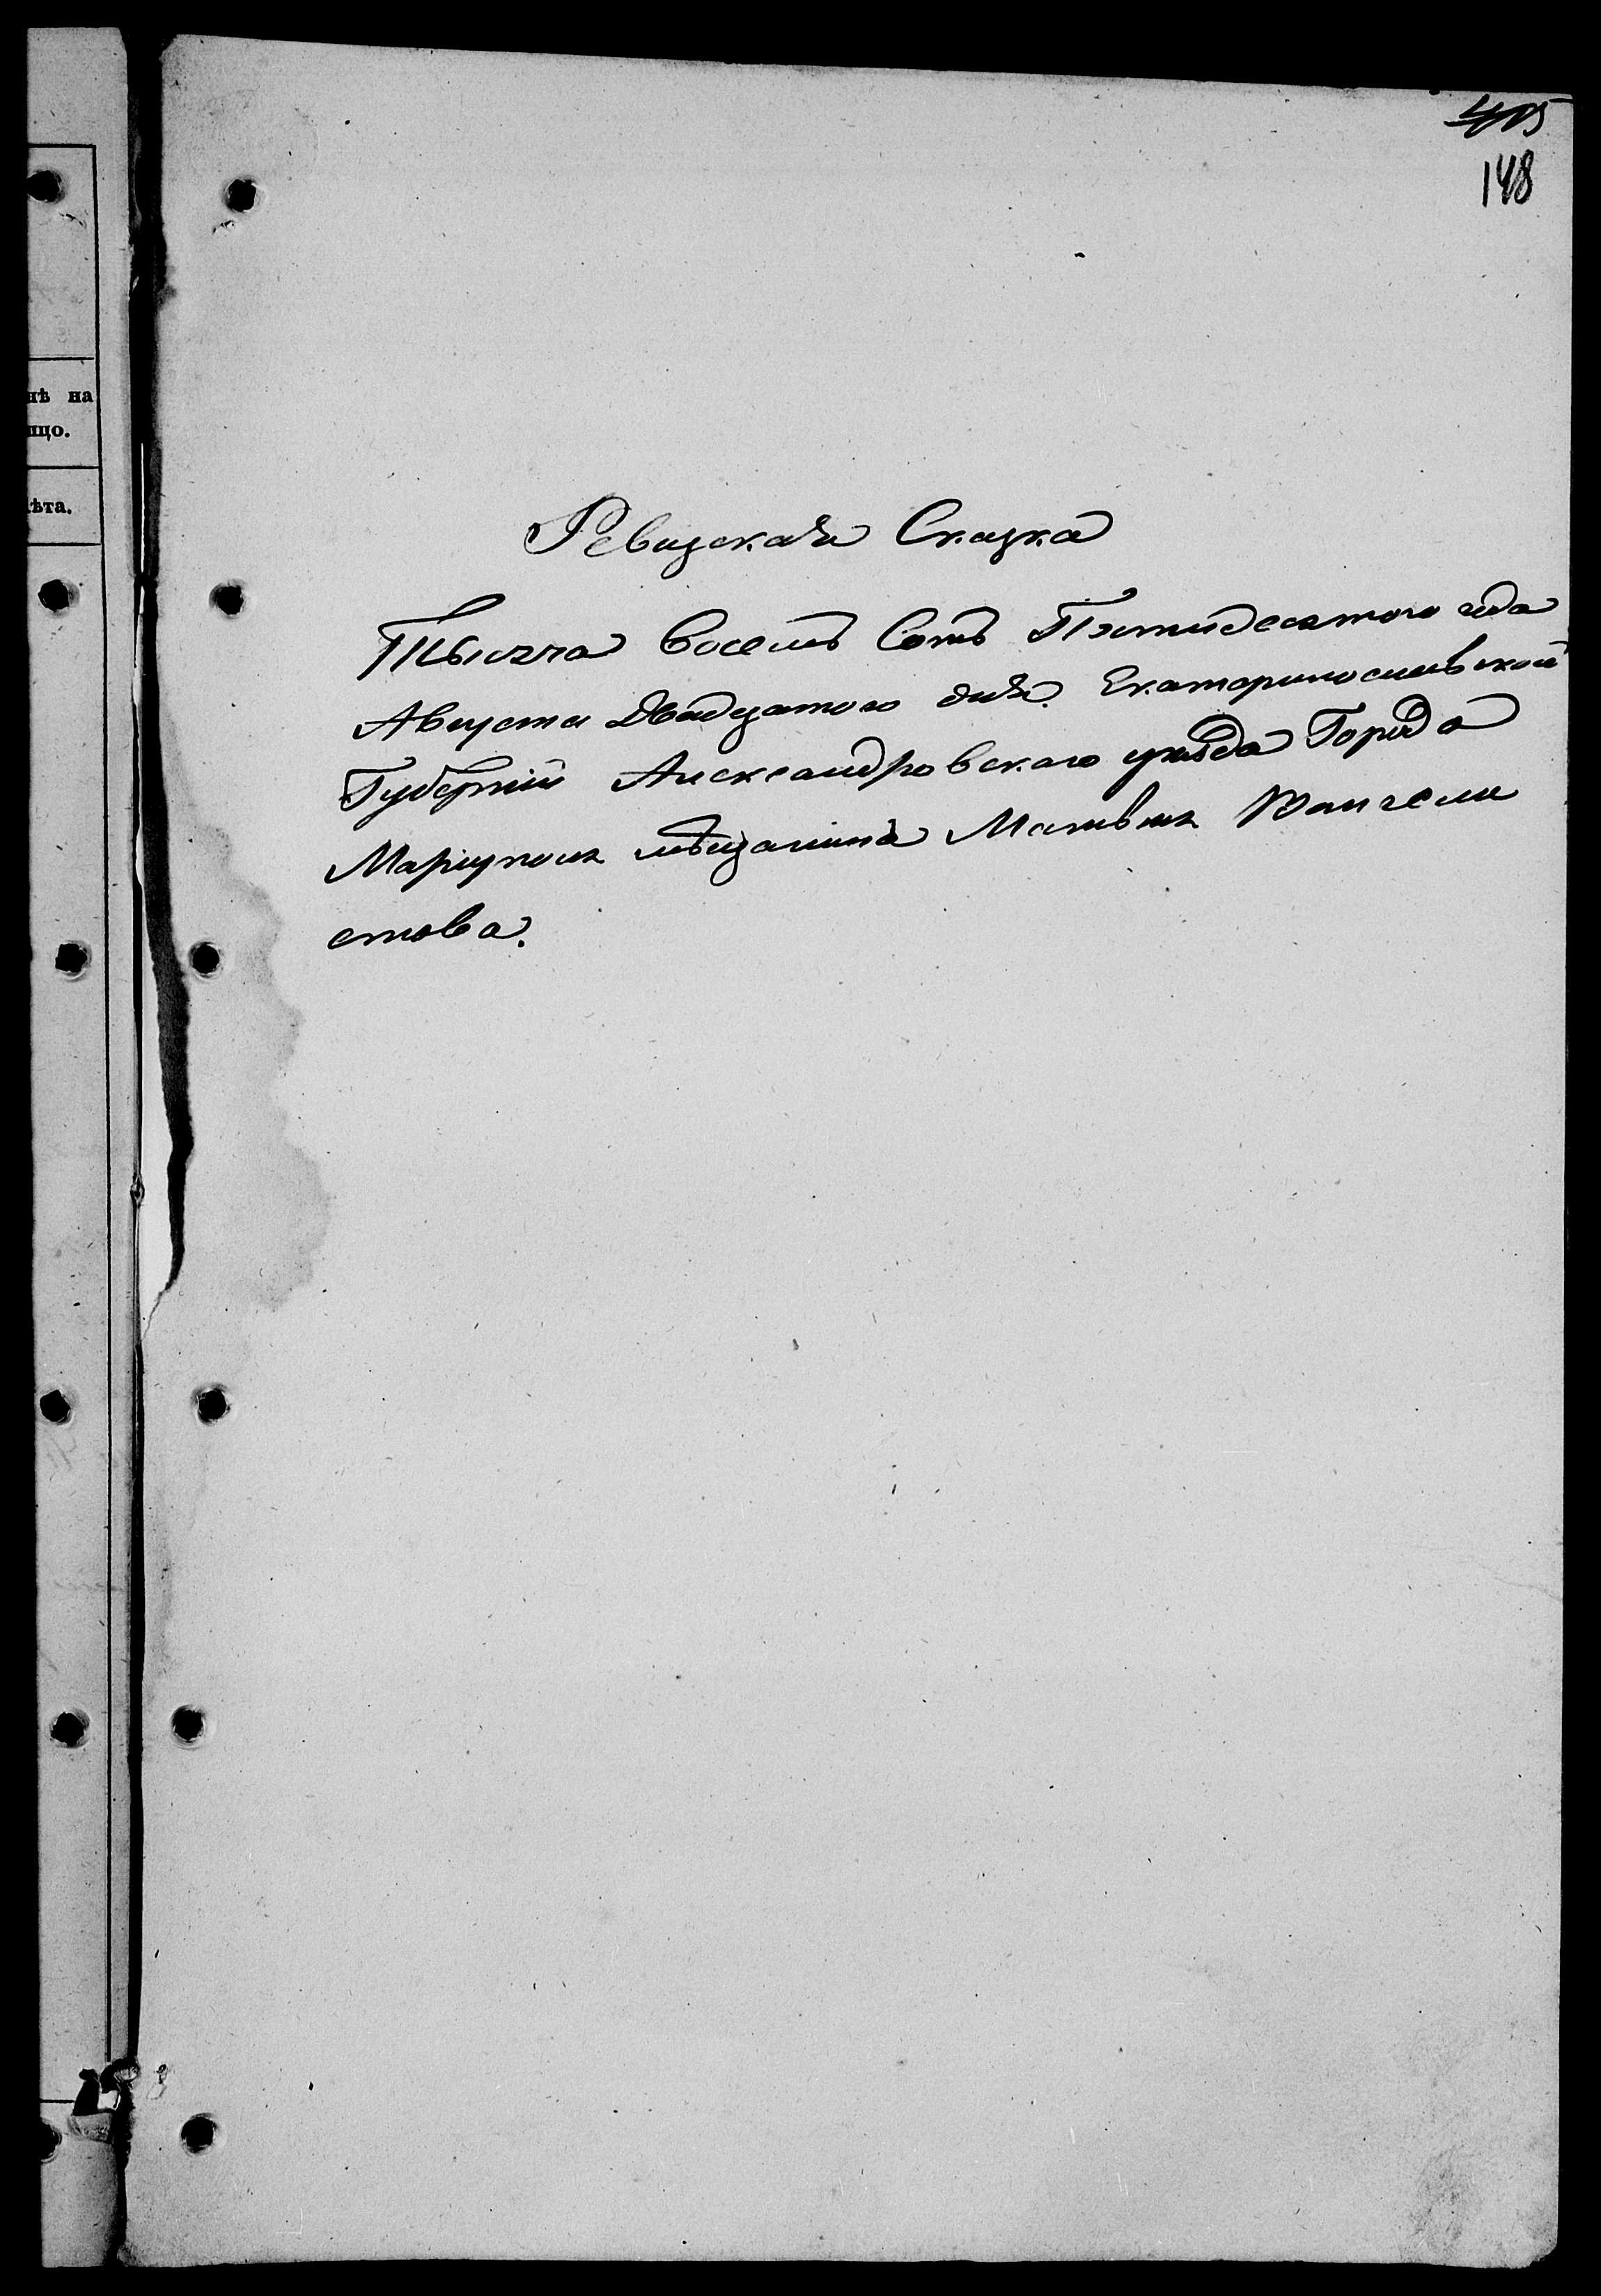 405
148
нѣ на
ицо.
ѣта.
Ревизская Сказка
Тысяча восемь Сотъ Пятидесятого года
Августа двадцатого дня. Екатеринославской
Губерніи Александровскаго уѣзда Города
Маріуполя мѣщанина Матвѣя Вангели
стова.